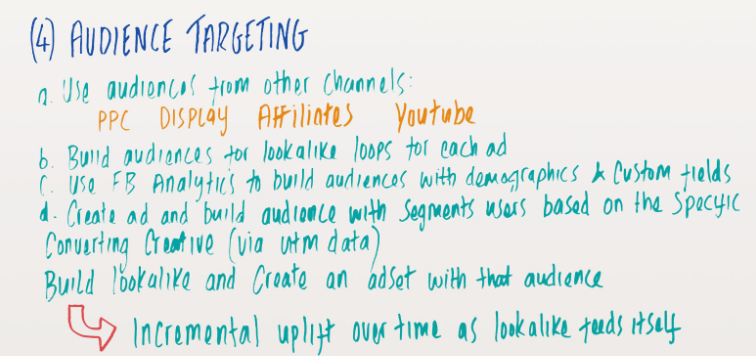 (4) AUDIENCE TARGETING
a. Use audiences from other channels:
PPC DISPLAY Affiliates Youtube
b. Build audiences for lookalike loops for each ad
C. Use FB Analytics to build audiences with demographics & Custom fields
d. Create ad and build audience with segments users based on the Specific
Converting Creative (via utm data)
Build lookalike and Create an adset with that audience
Incremental uplift over time as lookalike feeds itself